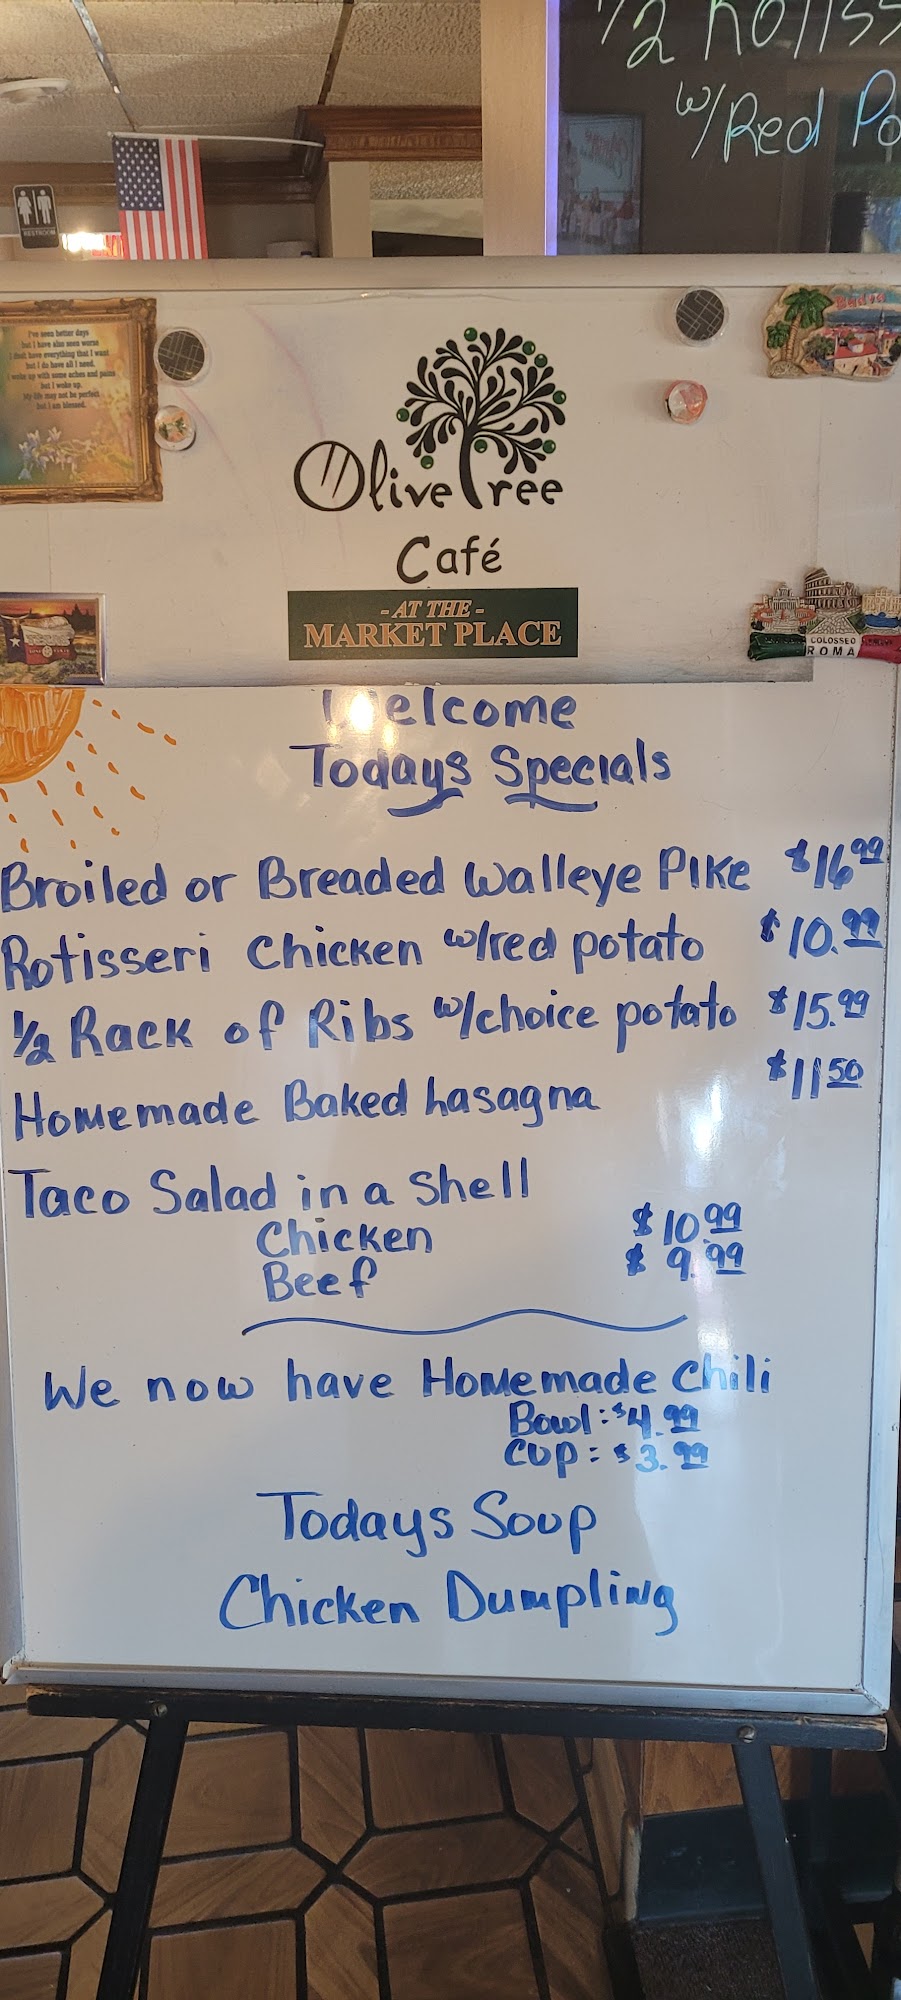 1/2 Rotiss
w/Red Po
RESTROOM
I've seen better days
but I have also seen worse
I don't have everything that I want
but I do have all I need.
I woke up with some aches and pains
but I woke up.
My life may not be perfect
but I am blessed.
Olive Tree
Café
- AT THE -
MARKET PLACE
COLOSSEO
ROMA
Welcome
Todays Specials
Broiled or Breaded Walleye Pike $16.99
Rotisseri Chicken w/red potato $10.99
1/2 Rack of Ribs w/choice potato $15.99
Homemade Baked Lasagna $11.50
Taco Salad in a Shell
Chicken $10.99
Beef $9.99
We now have Homemade Chili
Bowl: $4.99
Cup: $3.99
Todays Soup
Chicken Dumpling